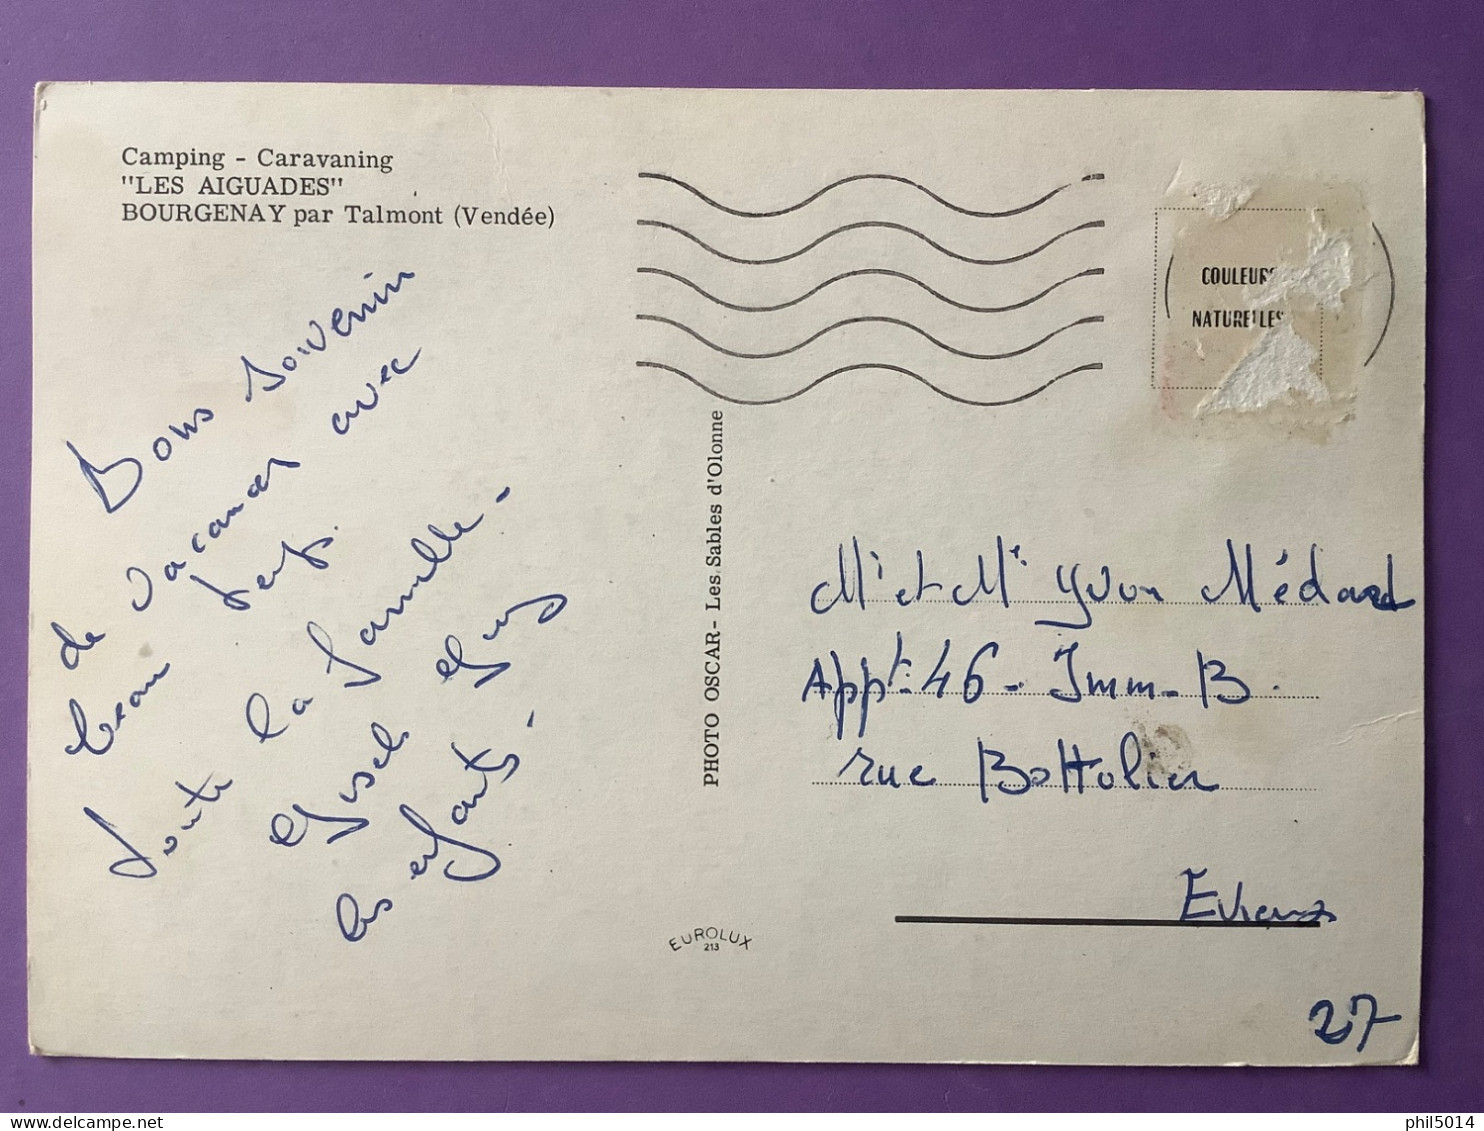 Camping - Caravaning
"LES AIGUADES"
BOURGENAY par Talmont (Vendée)
Bons souvenirs
de vacances avec
beau temps.
toute la famille -
Gisèle Guy
les enfants -
PHOTO OSCAR - Les Sables d'Olonne
EUROLUX
213
COULEURS
NATURELLES
Mr et Me Yvon Médard
Appt - 46 - Imm - B.
rue Bottolier
Evreux
27
phil5014